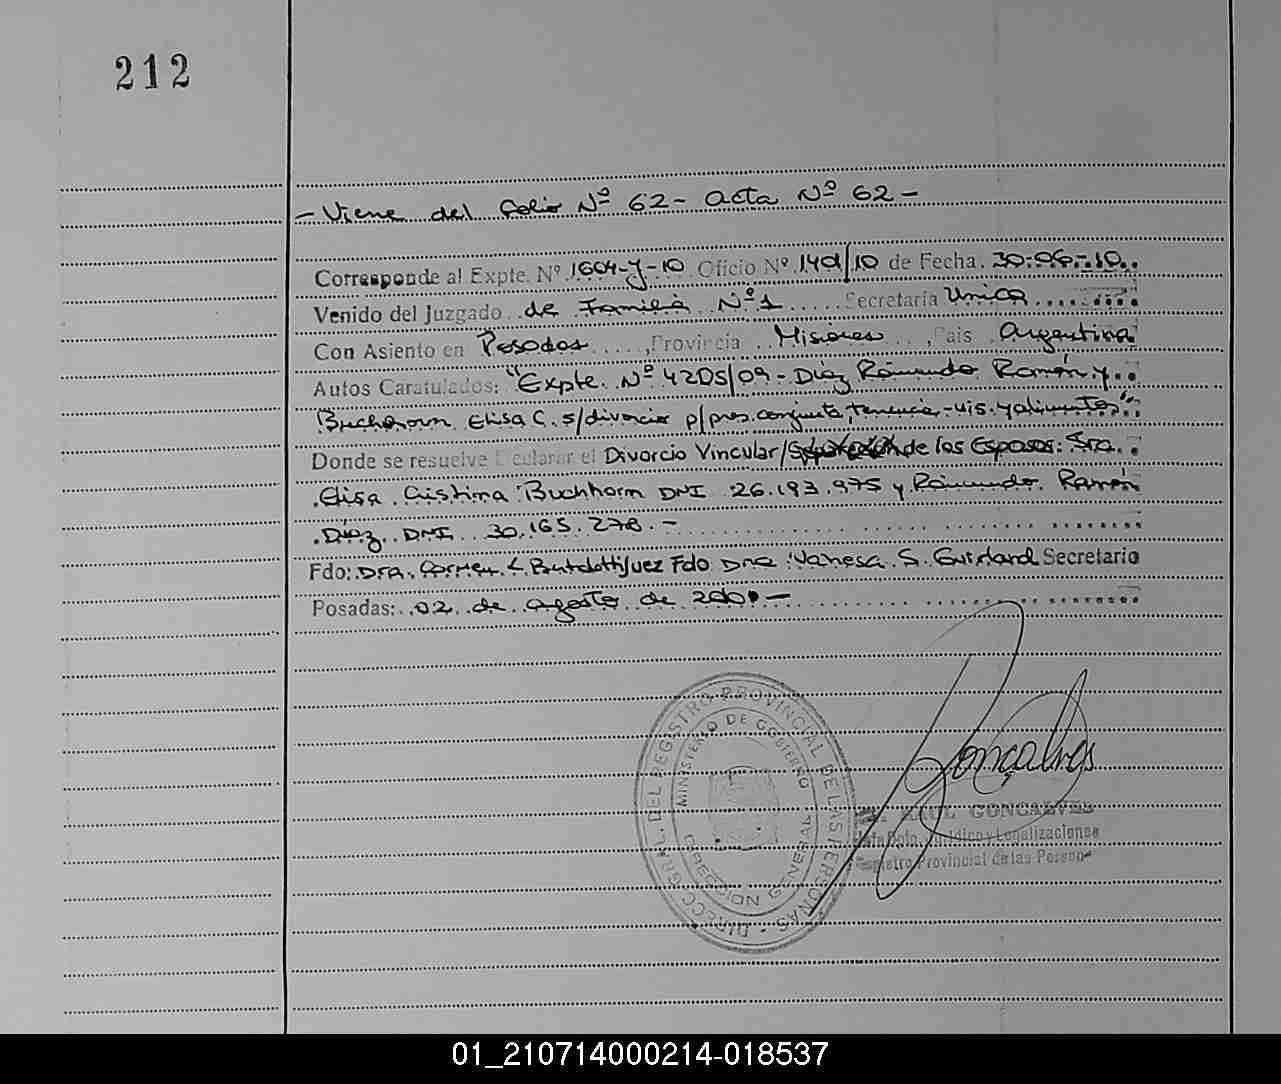 212
- Viene del Folio Nº 62 - Acta Nº 62 -
Corresponde al Expte. Nº 1604-J-10 Oficio Nº 149/10 de Fecha. 30-06-10.
Venido del Juzgado de Familia Nº 1 Secretaría Unica
Con Asiento en Posadas, Provincia Misiones, Pais Argentina
Autos Caratulados: "Expte. Nº 4205/09 - Diaz Raimundo Ramón y
Buchhorn Elisa C. s/divorcio p/pres. conjunta, tenencia - vis. y alimentos"
Donde se resuelve Declarar el Divorcio Vincular/ de los Esposos: Sra.
Elisa Cristina Buchhorn DNI 26.193.975 y Raimundo Ramón
Díaz DNI 30.165.278. -
Fdo: Dra. Juez Fdo Dra. Vanesa S. Secretario
Posadas: 02 de agosto de -
DIRECC. GRAL. DEL REGISTRO PROVINCIAL DE LAS PERSONAS -
MINISTERIO DE GOBIERNO
DIRECCION GENERAL
Gonçalves
RAUL GONCALVES
Jefe Dpto. Jurídico y Legalizaciones
Registro Provincial de las Personas
01_210714000214-018537